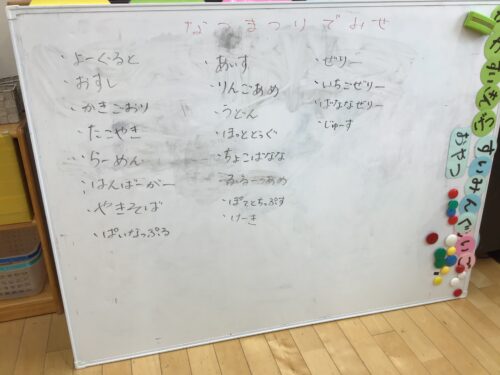 なつまつりでみせ
・よーぐると
・おすし
・かきごおり
・たこやき
・らーめん
・はんばーがー
・やきそば
・ぱいなっぷる
・あいす
・りんごあめ
・うどん
・ほっとどっぐ
・ちょこばなな
・ぽてとちっぷす
・けーき
・ぜりー
・いちごぜりー
・ばななぜりー
・じゅーす
おやつ